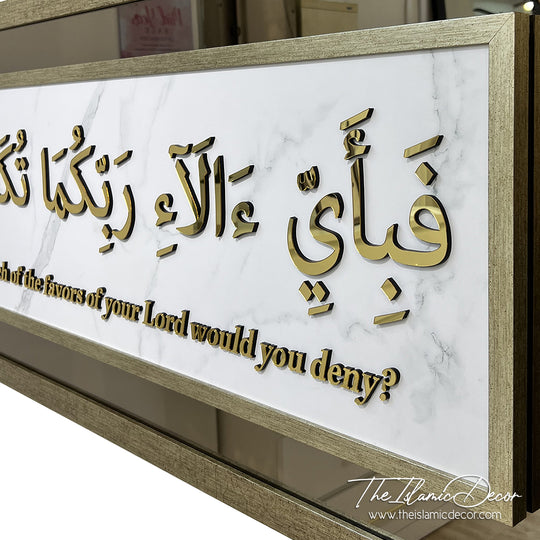 فَبِأَيِّ ءَالَآءِ رَبِّكُمَا
of the favors of your Lord would you deny?
The Islamic Decor
www.theislamicdecor.com